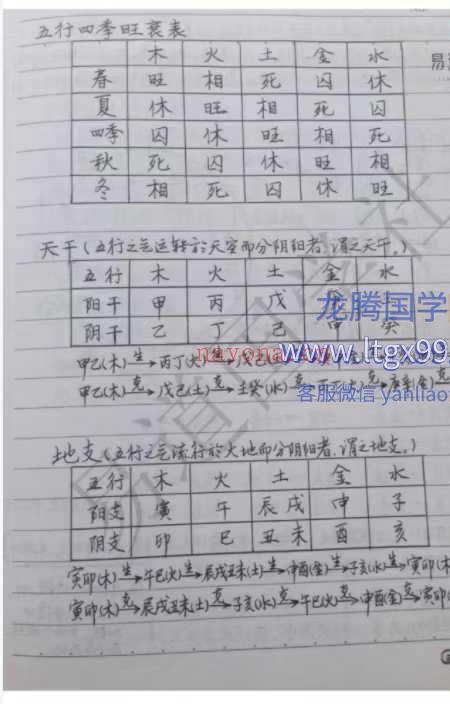 五行四季旺衰表
木 火 土 金 水
春 旺 相 死 囚 休
夏 休 旺 相 死 囚
四季 囚 休 旺 相 死
秋 死 囚 休 旺 相
冬 相 死 囚 休 旺
天干(五行之气运转於天空而分阴阳者,谓之天干。)
五行 木 火 土 金 水
阳干 甲 丙 戊
阴干 乙 丁 己 癸
龙腾国学
www.ltgx99
客服微信 yanliao
nayona
甲乙(木)生→丙丁(火)生→戊己
甲乙(木)克→戊己(土)克→壬癸(水)克→
地支(五行之气流行於大地而分阴阳者,谓之地支。)
五行 木 火 土 金 水
阳支 寅 午 辰戌 申 子
阴支 卯 巳 丑未 酉 亥
寅卯(木)生→午巳(火)生→辰戌丑未(土)生→申酉(金)生→子亥(水)生→寅卯(木
寅卯(木)克→辰戌丑未(土)克→子亥(水)克→午巳(火)克→申酉(金)克→寅卯(
易道国学社